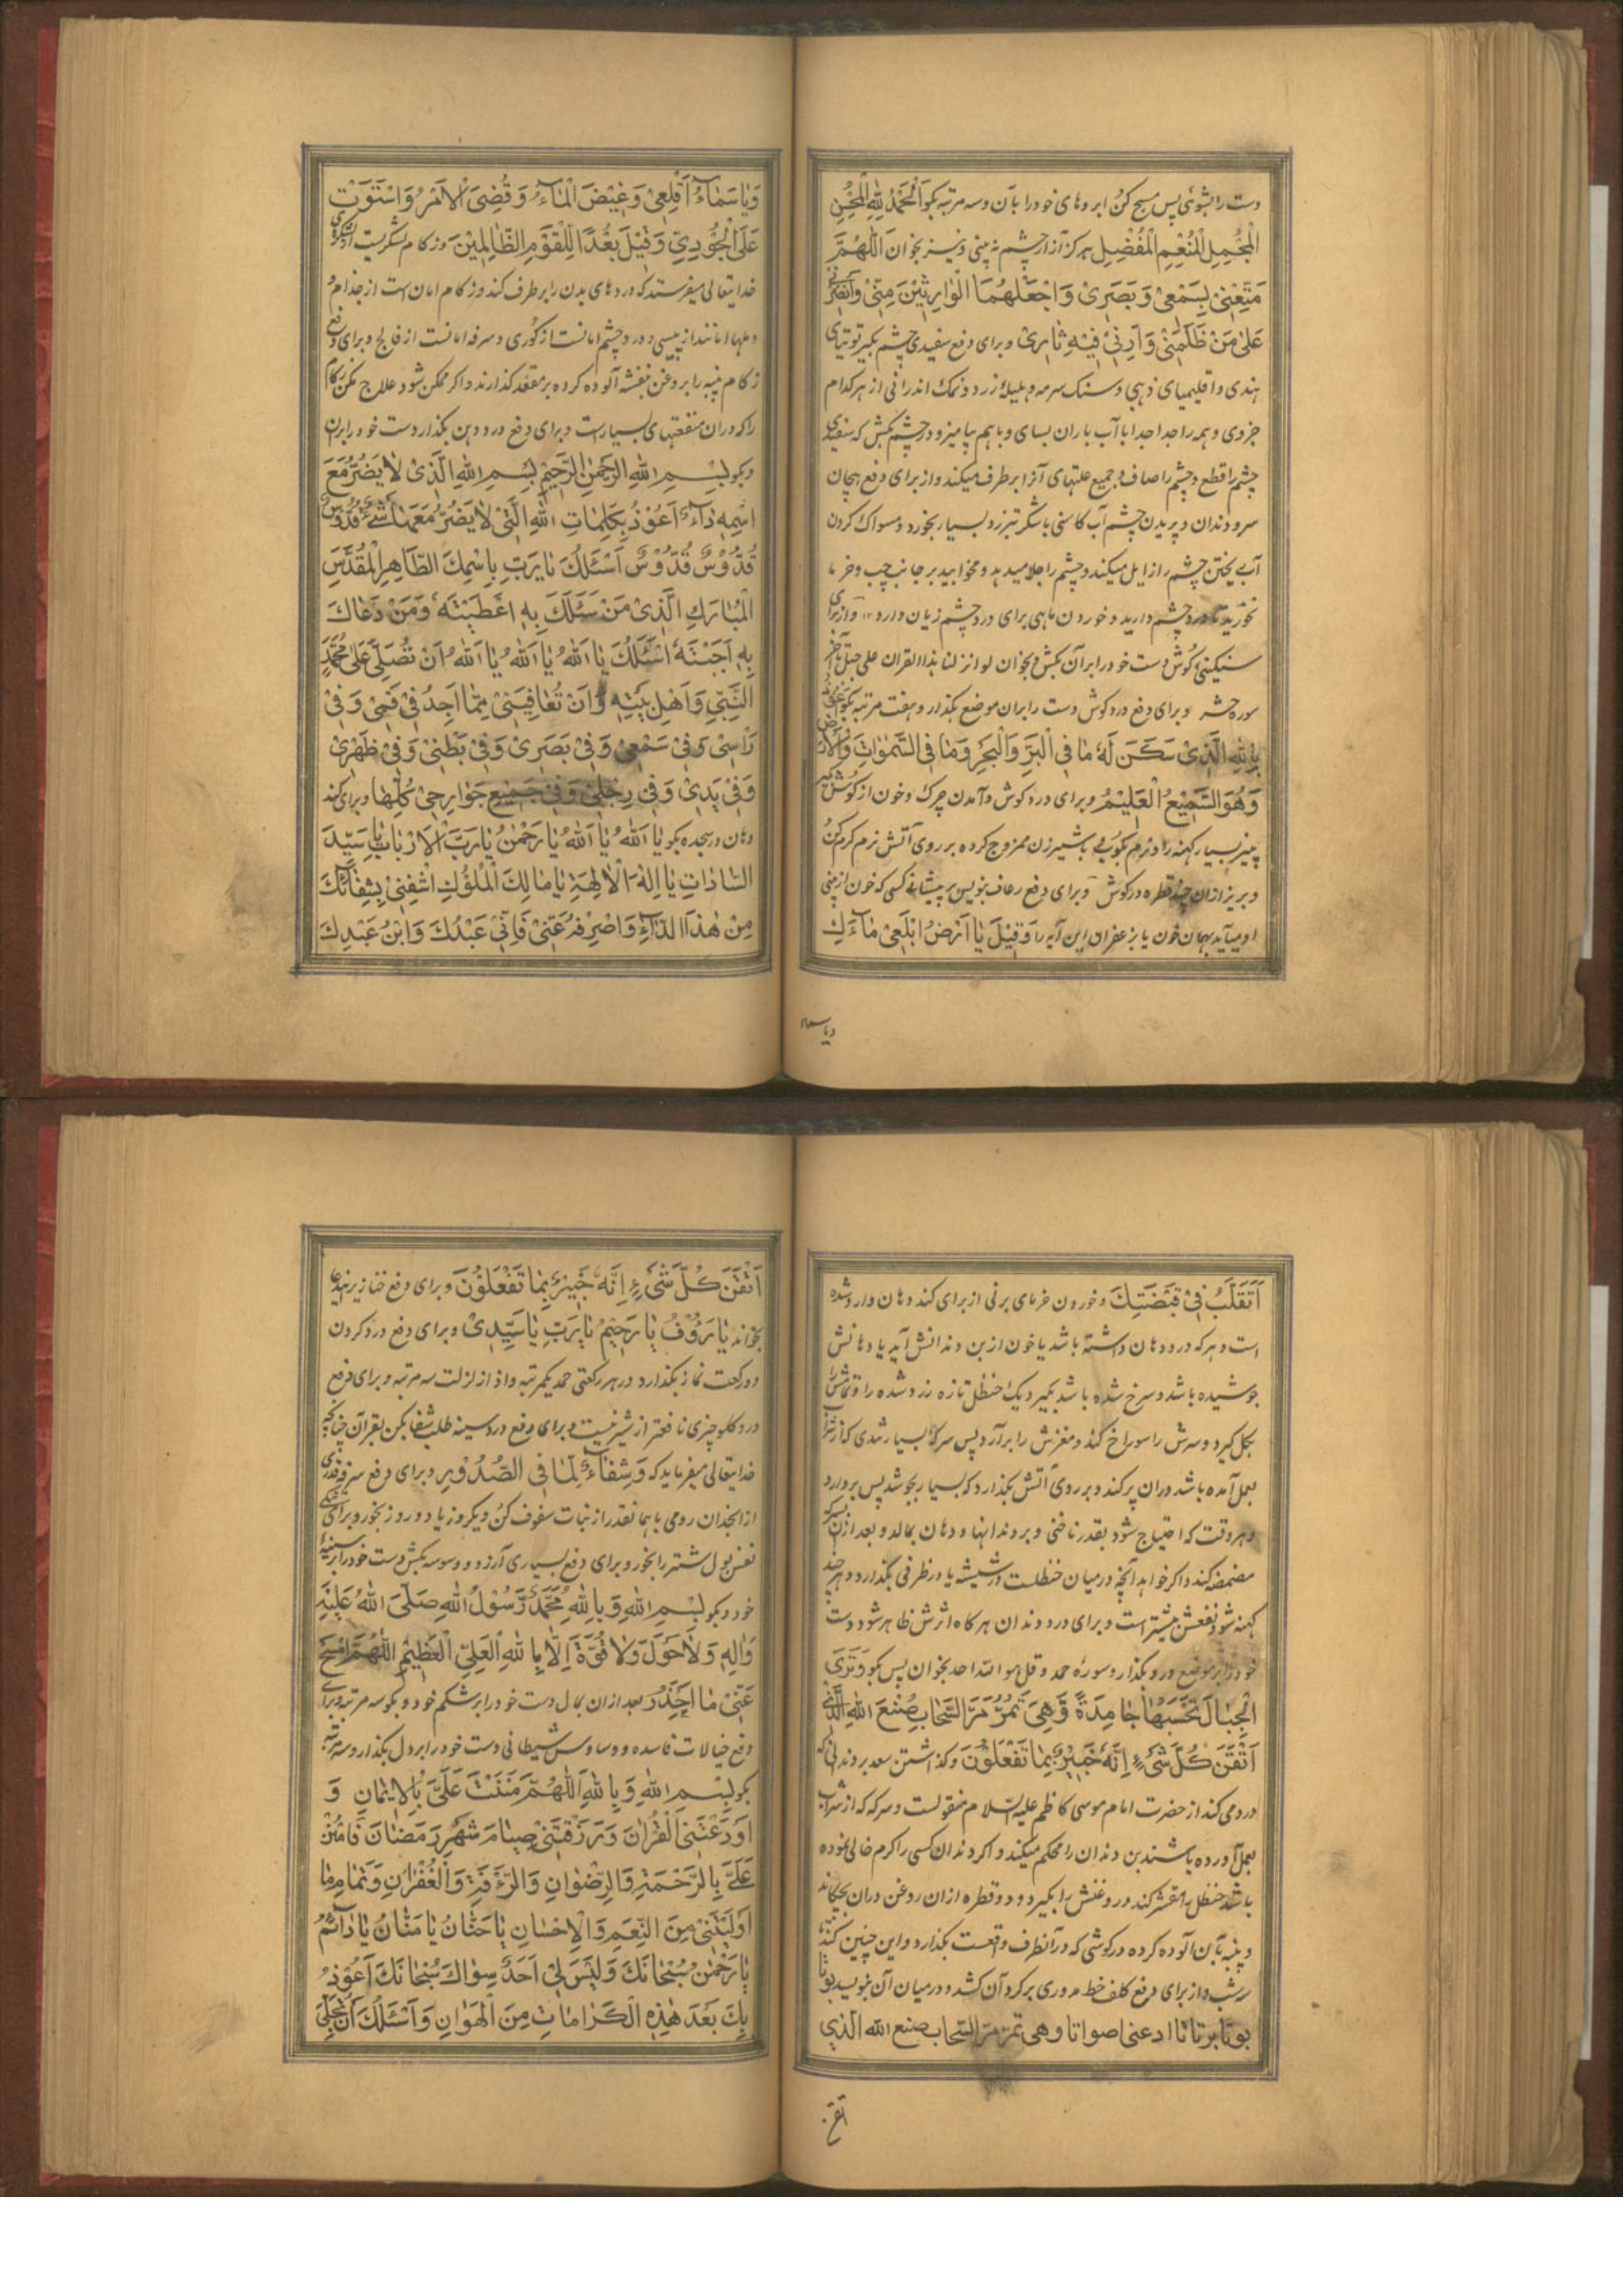 دست را بشوئی پس مسح کن ابروهای خود را بآن و سه مرتبه بکو اَلْحَمْدُ لِلّٰهِ الْمُحْسِنِ
الْمُجْمِلِ الْمُنْعِمِ الْمُفْضِلِ هرکز آزار چشم نه بینی و نیز بخوان اَللّٰهُمَّ
مَتِّعْنِیْ بِسَمْعِیْ وَ بَصَرِیْ وَ اجْعَلْهُمَا الْوَارِثَیْنِ مِنِّیْ وَانْصُرْنِیْ
عَلٰی مَنْ ظَلَمَنِیْ وَ اَرِنِیْ فِیْهِ ثَارِیْ و برای دفع سفیدی چشم بکیر توتیای
هندی و اقلیمیای ذهبی و سنک سرمه و هلیلهٔ زرد و نمک اندرانی از هر کدام
جزوی و همه را جدا جدا با آب باران بسای و باهم بیامیز و در چشم بکش که سفیدی
چشم را قطع و چشم را صاف و جمیع علتهای آنرا برطرف میکند و از برای دفع هیجان
سر و دندان و پریدن چشم آب کاسنی با شکر تبرزد بسیار بخورد و مسواک کردن
آب ریختن چشم را زایل میکند و چشم را جلا میدهد و مخوابید بر جانب چپ و خرما
نخورید تا درد چشم دارید و خوردن ماهی برای درد چشم زیان دارد ۱۲ و از برای
سنکینی کوش دست خود را بر آن بکش و بخوان لو انزلنا هذا القران علی جبل تا آخر
سوره حشر و برای دفع درد کوش دست را بران موضع بکذار و هفت مرتبه بکو اَعُوْذُ
بِاللّٰهِ الَّذِیْ سَکَنَ لَهٗ مَا فِی الْبَرِّ وَالْبَحْرِ وَمَا فِی السَّمٰوَاتِ وَالْاَرْضِ
وَهُوَ السَّمِیْعُ الْعَلِیْمُ و برای درد کوش و آمدن چرک و خون از کوش بکیر
پنیر بسیار کهنه را و نرم بکوبی با شیر زن ممزوج کرده بر روی آتش نرم کرم کن
و بریز ازان چند قطره در کوش و برای دفع رعاف بنویس بر پیشانی کسی که خون از بینی
او میآید بهمان خون یا بزعفران این آیه را وَ قِیْلَ یَا اَرْضُ ابْلَعِیْ مَاءَكِ
ویاسماء
وَیَا سَمَاءُ اَقْلِعِیْ وَغِیْضَ الْمَاءُ وَ قُضِیَ الْاَمْرُ وَاسْتَوَتْ
عَلَی الْجُوْدِیِّ وَقِیْلَ بُعْدًا لِّلْقَوْمِ الظَّالِمِیْنَ وزکام لشکریست از لشکرهای
خدایتعالی میفرستد که دردهای بدن را برطرف کند وزکام امان است از جذام و
دملها امانند از پیسی و درد چشم امانست از کوری و سرفه امانست از فالج و برای دفع
زکام پنبه را بروغن بنفشه آلوده کرده بر مقعد کذارند و اکر ممکن شود علاج مکن زکام
را که دران منفعتهای بسیار است و برای دفع درد دهن بکذار دست خود را بران
و بکو بِسْمِ اللّٰهِ الرَّحْمٰنِ الرَّحِیْمِ بِسْمِ اللّٰهِ الَّذِیْ لَا یَضُرُّ مَعَ
اسْمِهٖ دَاءٌ اَعُوْذُ بِکَلِمَاتِ اللّٰهِ الَّتِیْ لَا یَضُرُّ مَعَهَا شَیْءٌ قُدُّوْسٌ
قُدُّوْسٌ قُدُّوْسٌ اَسْئَلُكَ یَا رَبِّ بِاِسْمِكَ الطَّاهِرِ الْمُقَدَّسِ
الْمُبَارَكِ الَّذِیْ مَنْ سَئَلَكَ بِهٖ اَعْطَیْتَهٗ وَمَنْ دَعَاكَ
بِهٖ اَجَبْتَهٗ اَسْئَلُكَ یَا اَللّٰهُ یَا اَللّٰهُ یَا اَللّٰهُ اَنْ تُصَلِّیَ عَلٰی مُحَمَّدٍ
النَّبِیِّ وَاَهْلِ بَیْتِهٖ وَاَنْ تُعَافِیَنِیْ مِمَّا اَجِدُ فِیْ فَمِیْ وَفِیْ
رَاْسِیْ وَفِیْ سَمْعِیْ وَفِیْ بَصَرِیْ وَفِیْ بَطْنِیْ وَفِیْ ظَهْرِیْ
وَفِیْ یَدِیْ وَفِیْ رِجْلِیْ وَفِیْ جَمِیْعِ جَوَارِحِیْ کُلِّهَا و برای کند
دهان در سجده بکو یَا اَللّٰهُ یَا اَللّٰهُ یَا رَحْمٰنُ یَا رَبَّ الْاَرْبَابِ یَا سَیِّدَ
السَّادَاتِ یَا اِلٰهَ الْاٰلِهَةِ یَا مَالِكَ الْمُلُوْكِ اشْفِنِیْ بِشِفَائِكَ
مِنْ هٰذَا الدَّاءِ وَاصْرِفْهُ عَنِّیْ فَاِنِّیْ عَبْدُكَ وَابْنُ عَبْدِكَ
اَتَقَلَّبُ فِیْ قَبْضَتِكَ و خوردن خرمای برنی از برای کند دهان وارد شده
است و هرکه درد دهان داشته باشد یا خون از بن دندانش آید یا دهانش
جوشیده باشد و سرخ شده باشد بکیرد یک حنظل تازه زرد شده را و تمامش را
بکل کیرد و سرش را سوراخ کند و مغزش را برآرد پس سرکهٔ بسیار تندی که از شراب
بعمل آمده باشد دران پر کند و بر روی آتش بکذارد که بسیار بجوشد پس بردارد
و هر وقت که احتیاج شود بقدر ناخنی و بر دندانها و دهان بمالد و بعد ازان بسرکه
مضمضه کند و اکر خواهد آنچه درمیان حنظلست در شیشه یا در ظرفی بکذارد و هر چند
کهنه شود نفعش بیشتر است و برای درد دندان هر کاه اثرش ظاهر شود دست
خود را بر موضع درد بکذار و سورهٔ حمد و قل هو الله احد بخوان پس بکو وَتَرَی
الْجِبَالَ تَحْسَبُهَا جَامِدَةً وَّهِیَ تَمُرُّ مَرَّ السَّحَابِ صُنْعَ اللّٰهِ الَّذِیْ
اَتْقَنَ کُلَّ شَیْءٍ اِنَّهٗ خَبِیْرٌ بِمَا تَفْعَلُوْنَ و کذاشتن سعد بر دندانی که
درد می کند از حضرت امام موسی کاظم علیه السلام منقولست و سرکه که از شراب
بعمل آورده باشند بن دندان را محکم میکند و اکر دندان کسی را کرم خالی نموده
باشد حنظل را مقشر کند و روغنش را بکیرد و دو قطره ازان روغن دران بچکاند
و پنبه بآن آلوده کرده در کوشی که در آنطرف واقعست بکذارد و این چنین کند سه
شب و از برای دفع کلف خط مدوری بر کرد آن کشد و درمیان آن بنویسد بوتا
بوتا برتاتا ادعنی اصواتا وهی تمر مر السحاب صنع الله الذی
اتقن
اَتْقَنَ کُلَّ شَیْءٍ اِنَّهٗ خَبِیْرٌ بِمَا تَفْعَلُوْنَ و برای دفع خنازیر
بخواند یَا رَؤُوْفُ یَا رَحِیْمُ یَا رَبِّ یَا سَیِّدِیْ و برای دفع درد کردن
دو رکعت نماز بکذارد در هر رکعتی حمد یکمرتبه و اذا زلزلت سه مرتبه و برای دفع
درد کلو چیزی نافعتر از شیر نیست و برای دفع درد سینه طلب شفا بکن بقرآن چنانچه
خدایتعالی میفرماید که وَشِفَاءٌ لِّمَا فِی الصُّدُوْرِ و برای دفع سرفه قدری
از انجدان رومی با همانقدر از نبات سفوف کن و یکروز یا دو روز بخور و برای تنکی
نفس بول شتر را بخور و برای دفع بسیاری آرزو و وسوسه بکش دست خود را بر سینهٔ
خود و بکو بِسْمِ اللّٰهِ وَ بِاللّٰهِ مُحَمَّدٌ رَّسُوْلُ اللّٰهِ صَلَّی اللّٰهُ عَلَیْهِ
وَاٰلِهٖ وَلَا حَوْلَ وَلَا قُوَّةَ اِلَّا بِاللّٰهِ الْعَلِیِّ الْعَظِیْمِ اَللّٰهُمَّ امْسَحْ
عَنِّیْ مَا اَحْذَرُ بعد ازان بمال دست خود را بر شکم خود و بکو سه مرتبه و برای
دفع خیالات فاسده و وساوس شیطانی دست خود را بر دل بکذار و سه مرتبه
بکو بِسْمِ اللّٰهِ وَ بِاللّٰهِ اَللّٰهُمَّ مَنَنْتَ عَلَیَّ بِالْاِیْمَانِ وَ
اَوْدَعْتَنِیْ الْقُرْاٰنَ وَرَزَقْتَنِیْ صِیَامَ شَهْرِ رَمَضَانَ فَامْنُنْ
عَلَیَّ بِالرَّحْمَةِ وَالرِّضْوَانِ وَالرَّأْفَةِ وَالْغُفْرَانِ وَتَمَامِ مَا
اَوْلَیْتَنِیْ مِنَ النِّعَمِ وَالْاِحْسَانِ یَا حَنَّانُ یَا مَنَّانُ یَا دَائِمُ
یَا رَحْمٰنُ سُبْحَانَكَ وَلَیْسَ لِیْ اَحَدٌ سِوَاكَ سُبْحَانَكَ اَعُوْذُ
بِكَ بَعْدَ هٰذِهِ الْکَرَامَاتِ مِنَ الْهَوَانِ وَاَسْئَلُكَ اَنْ تُجَلِّیَ